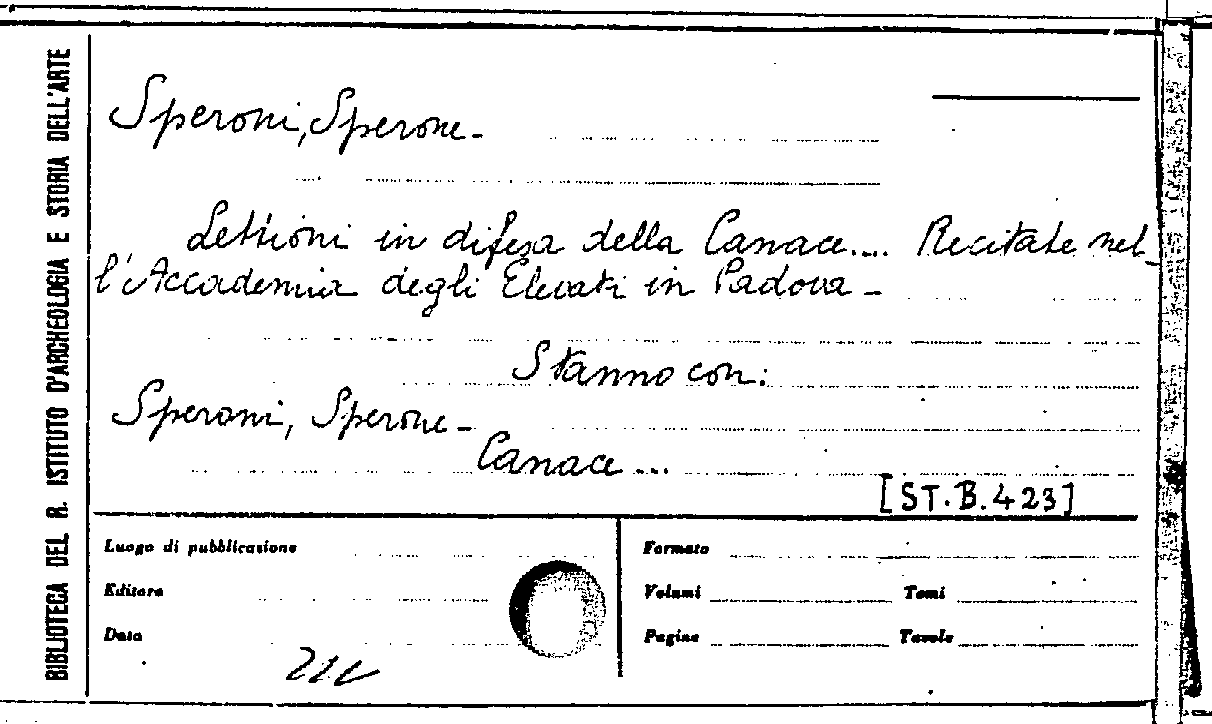 BIBLIOTECA DEL R. ISTITUTO D'ARCHEOLOGIA E STORIA DELL'ARTE
Speroni, Sperone-
Lettioni in difesa della Canace.... Recitate nel_
l'Accademia degli Elevati in Padova-
Stanno con:
Speroni, Sperone-
Canace...
[ST.B.423]
Luogo di pubblicazione
Formato
Editore
Volumi Tomi
Data
Pagine Tavole